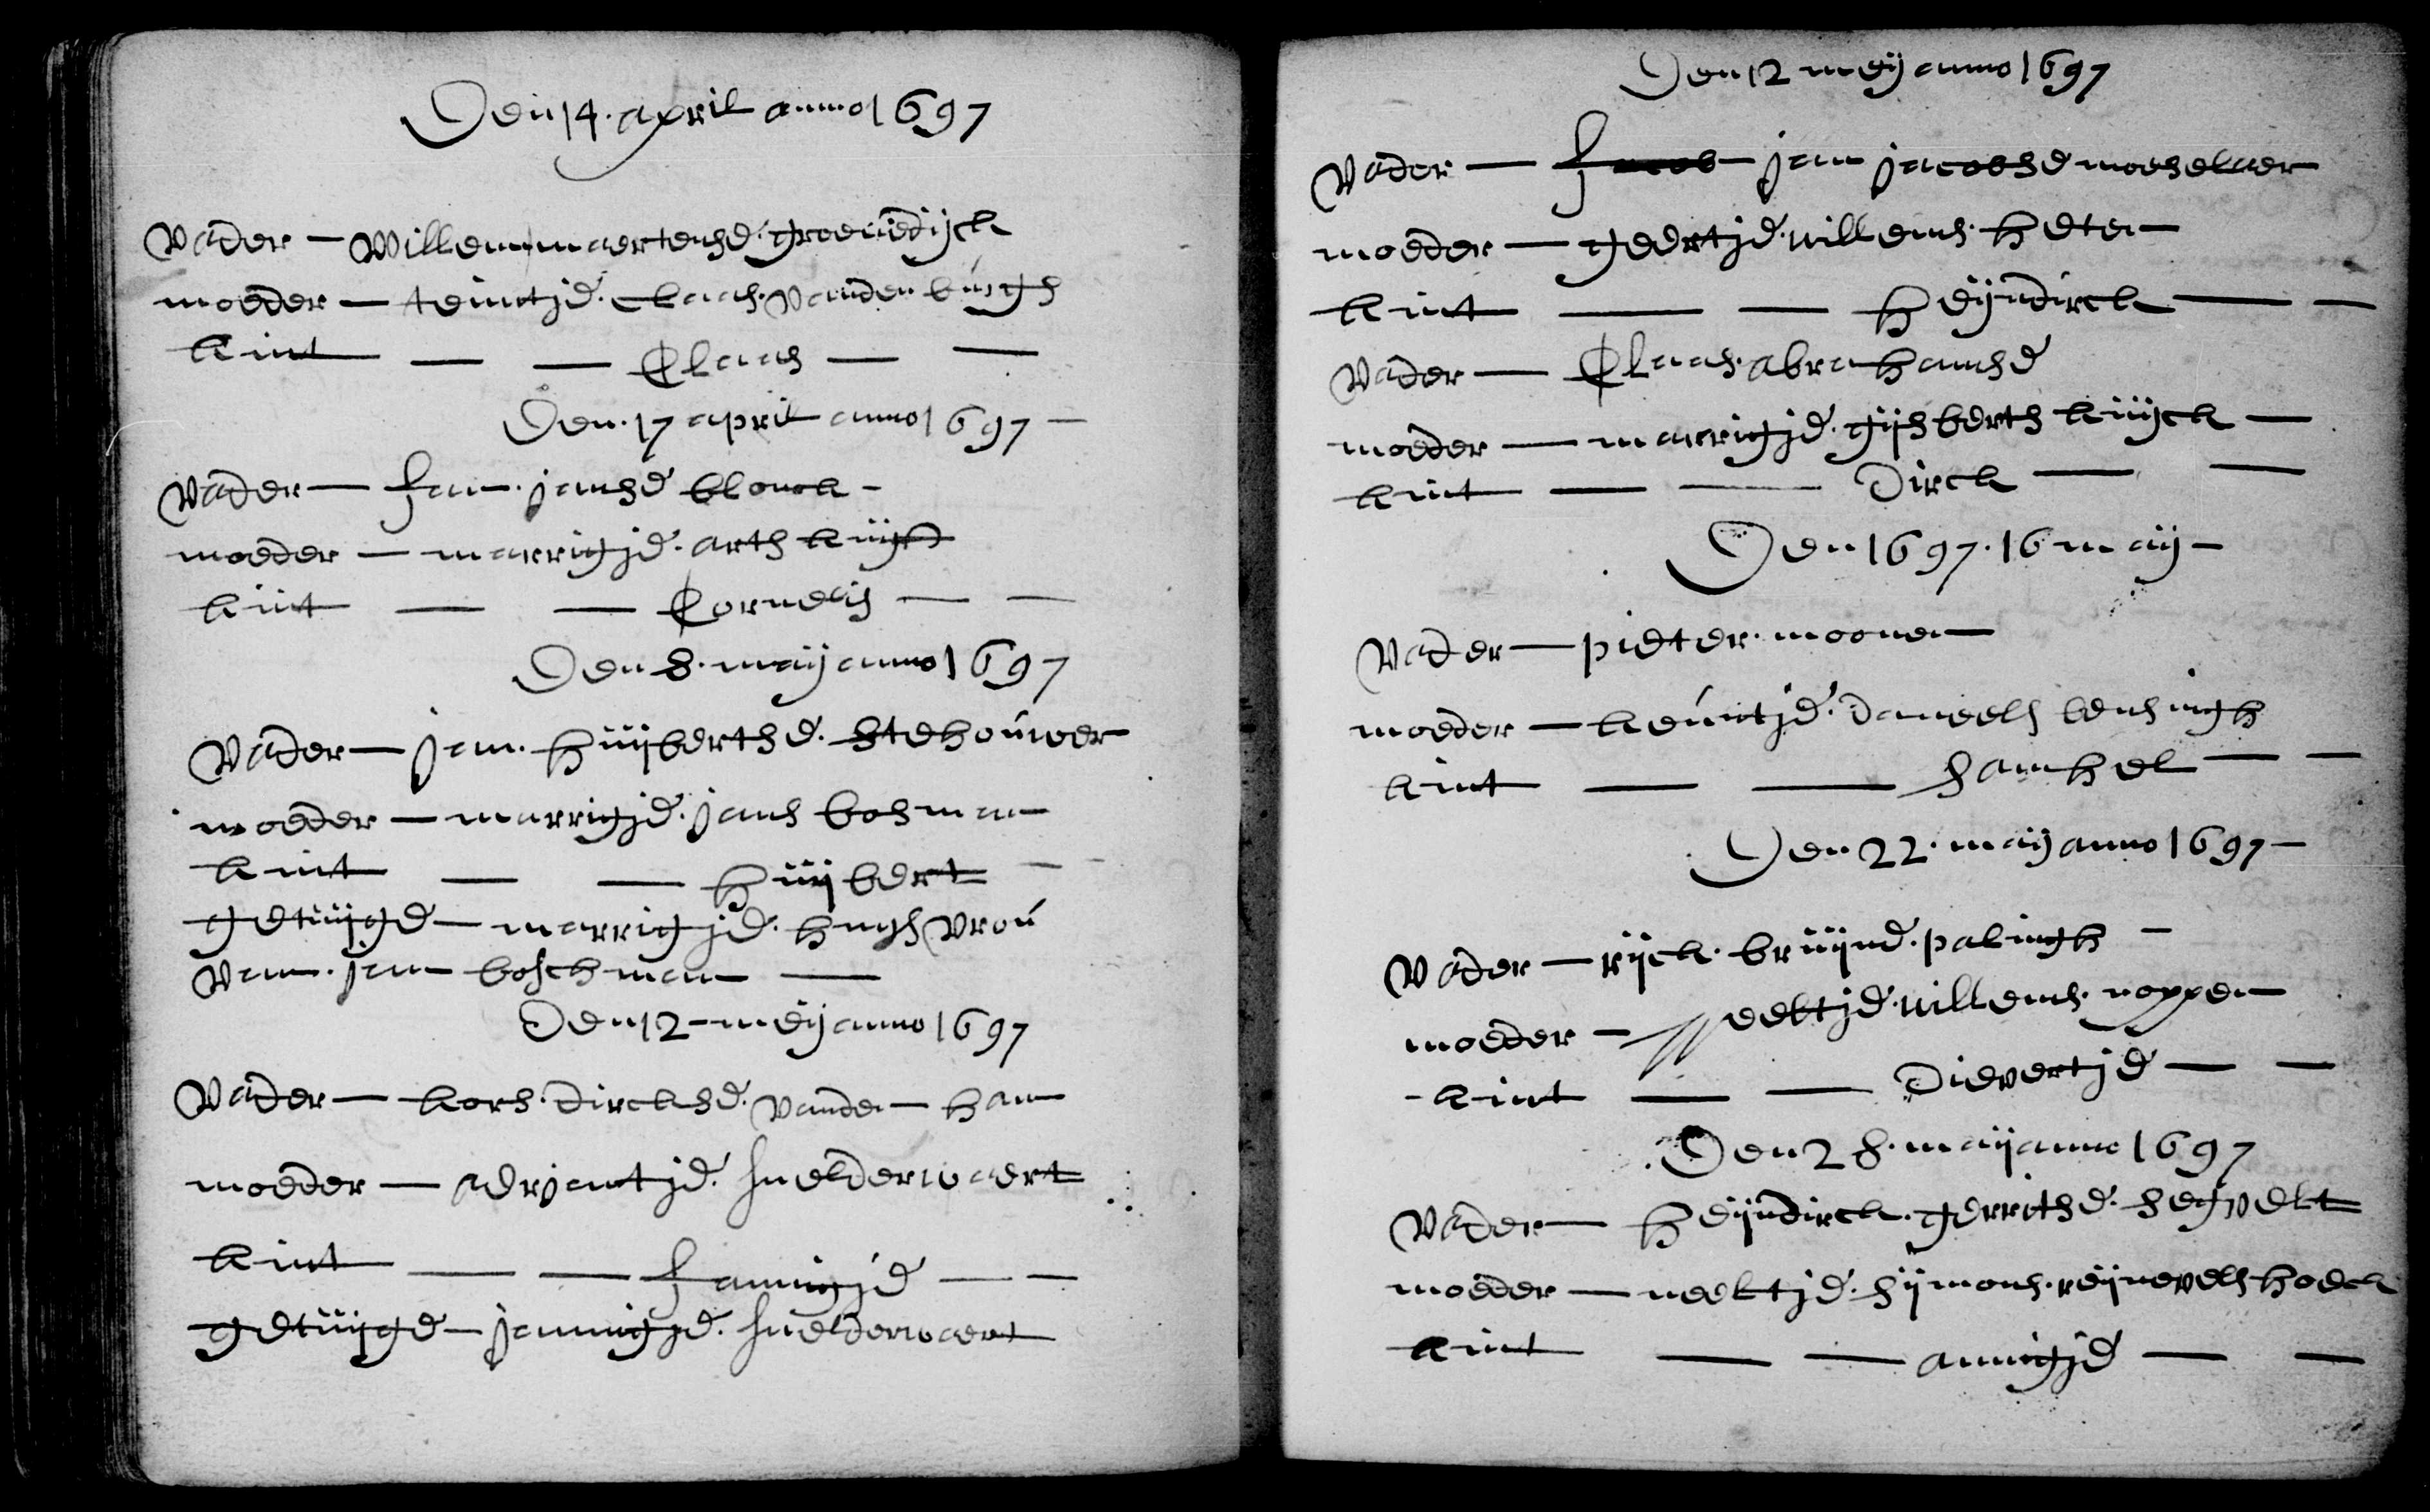 Den 14. april anno 1697
Vader — Willem maertense groenedijck
moeder — teuntje. claas. vanden burgh
kint — — Claas — —
Den. 17 april anno 1697 —
Vader — Jan. janse blonck —
moeder — marrigje. arts kuijf
kint — — Cornelis — —
Den 8. maij anno 1697
Vader — jan. huijbertse. stehouwer
moeder — marrigje. jans bosman
kint — — huijbert —
getuijge — marrigje. huijs vrou
van. jan boschman —
Den 12 — meij anno 1697
Vader — kors. dirckse. vanden ham
moeder — adrjantje. snelderwaert
kint — — Jannigje — —
getuijge — jannigje. snelderwaert
Den 12 meij anno 1697
Vader — Jacob jan jacobse moeselaer
moeder — geertje. willems.
kint — — heijndirck — —
Vader — Claas. abrahamse
moeder — marrigje. gijsberts kuijck —
kint — — Dirck — —
Den 1697. 16 maij —
Vader — pieter. moonen
moeder — keuntje. daneels lensingh
kint — — samuel — —
Den 22. maij anno 1697 —
Vader — rijck. bruijne. palingh —
moeder — Neeltje. willems. noppen
kint — — Dievertje — —
Den 28. maij anno 1697
Vader — heijndirck. gerritse. segvelt
moeder — neeltje. sijmons. reijnevelshoeck
kint — — annigje — —